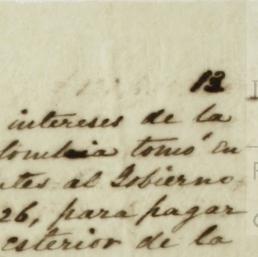 13
intereses de la
lombia tomó en
ntes al Gobierno
26, para pagar
esterior de la